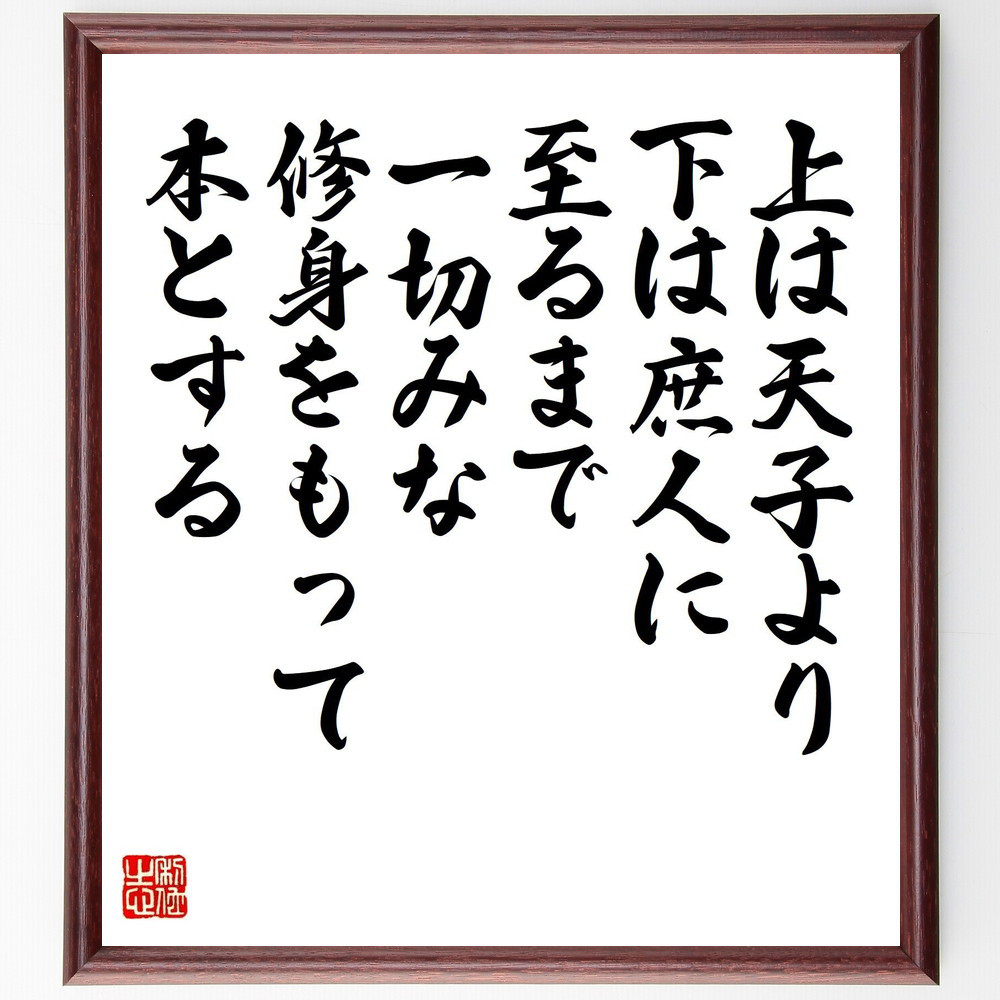 上は天子より
下は庶人に
至るまで
一切みな
修身をもって
本とする